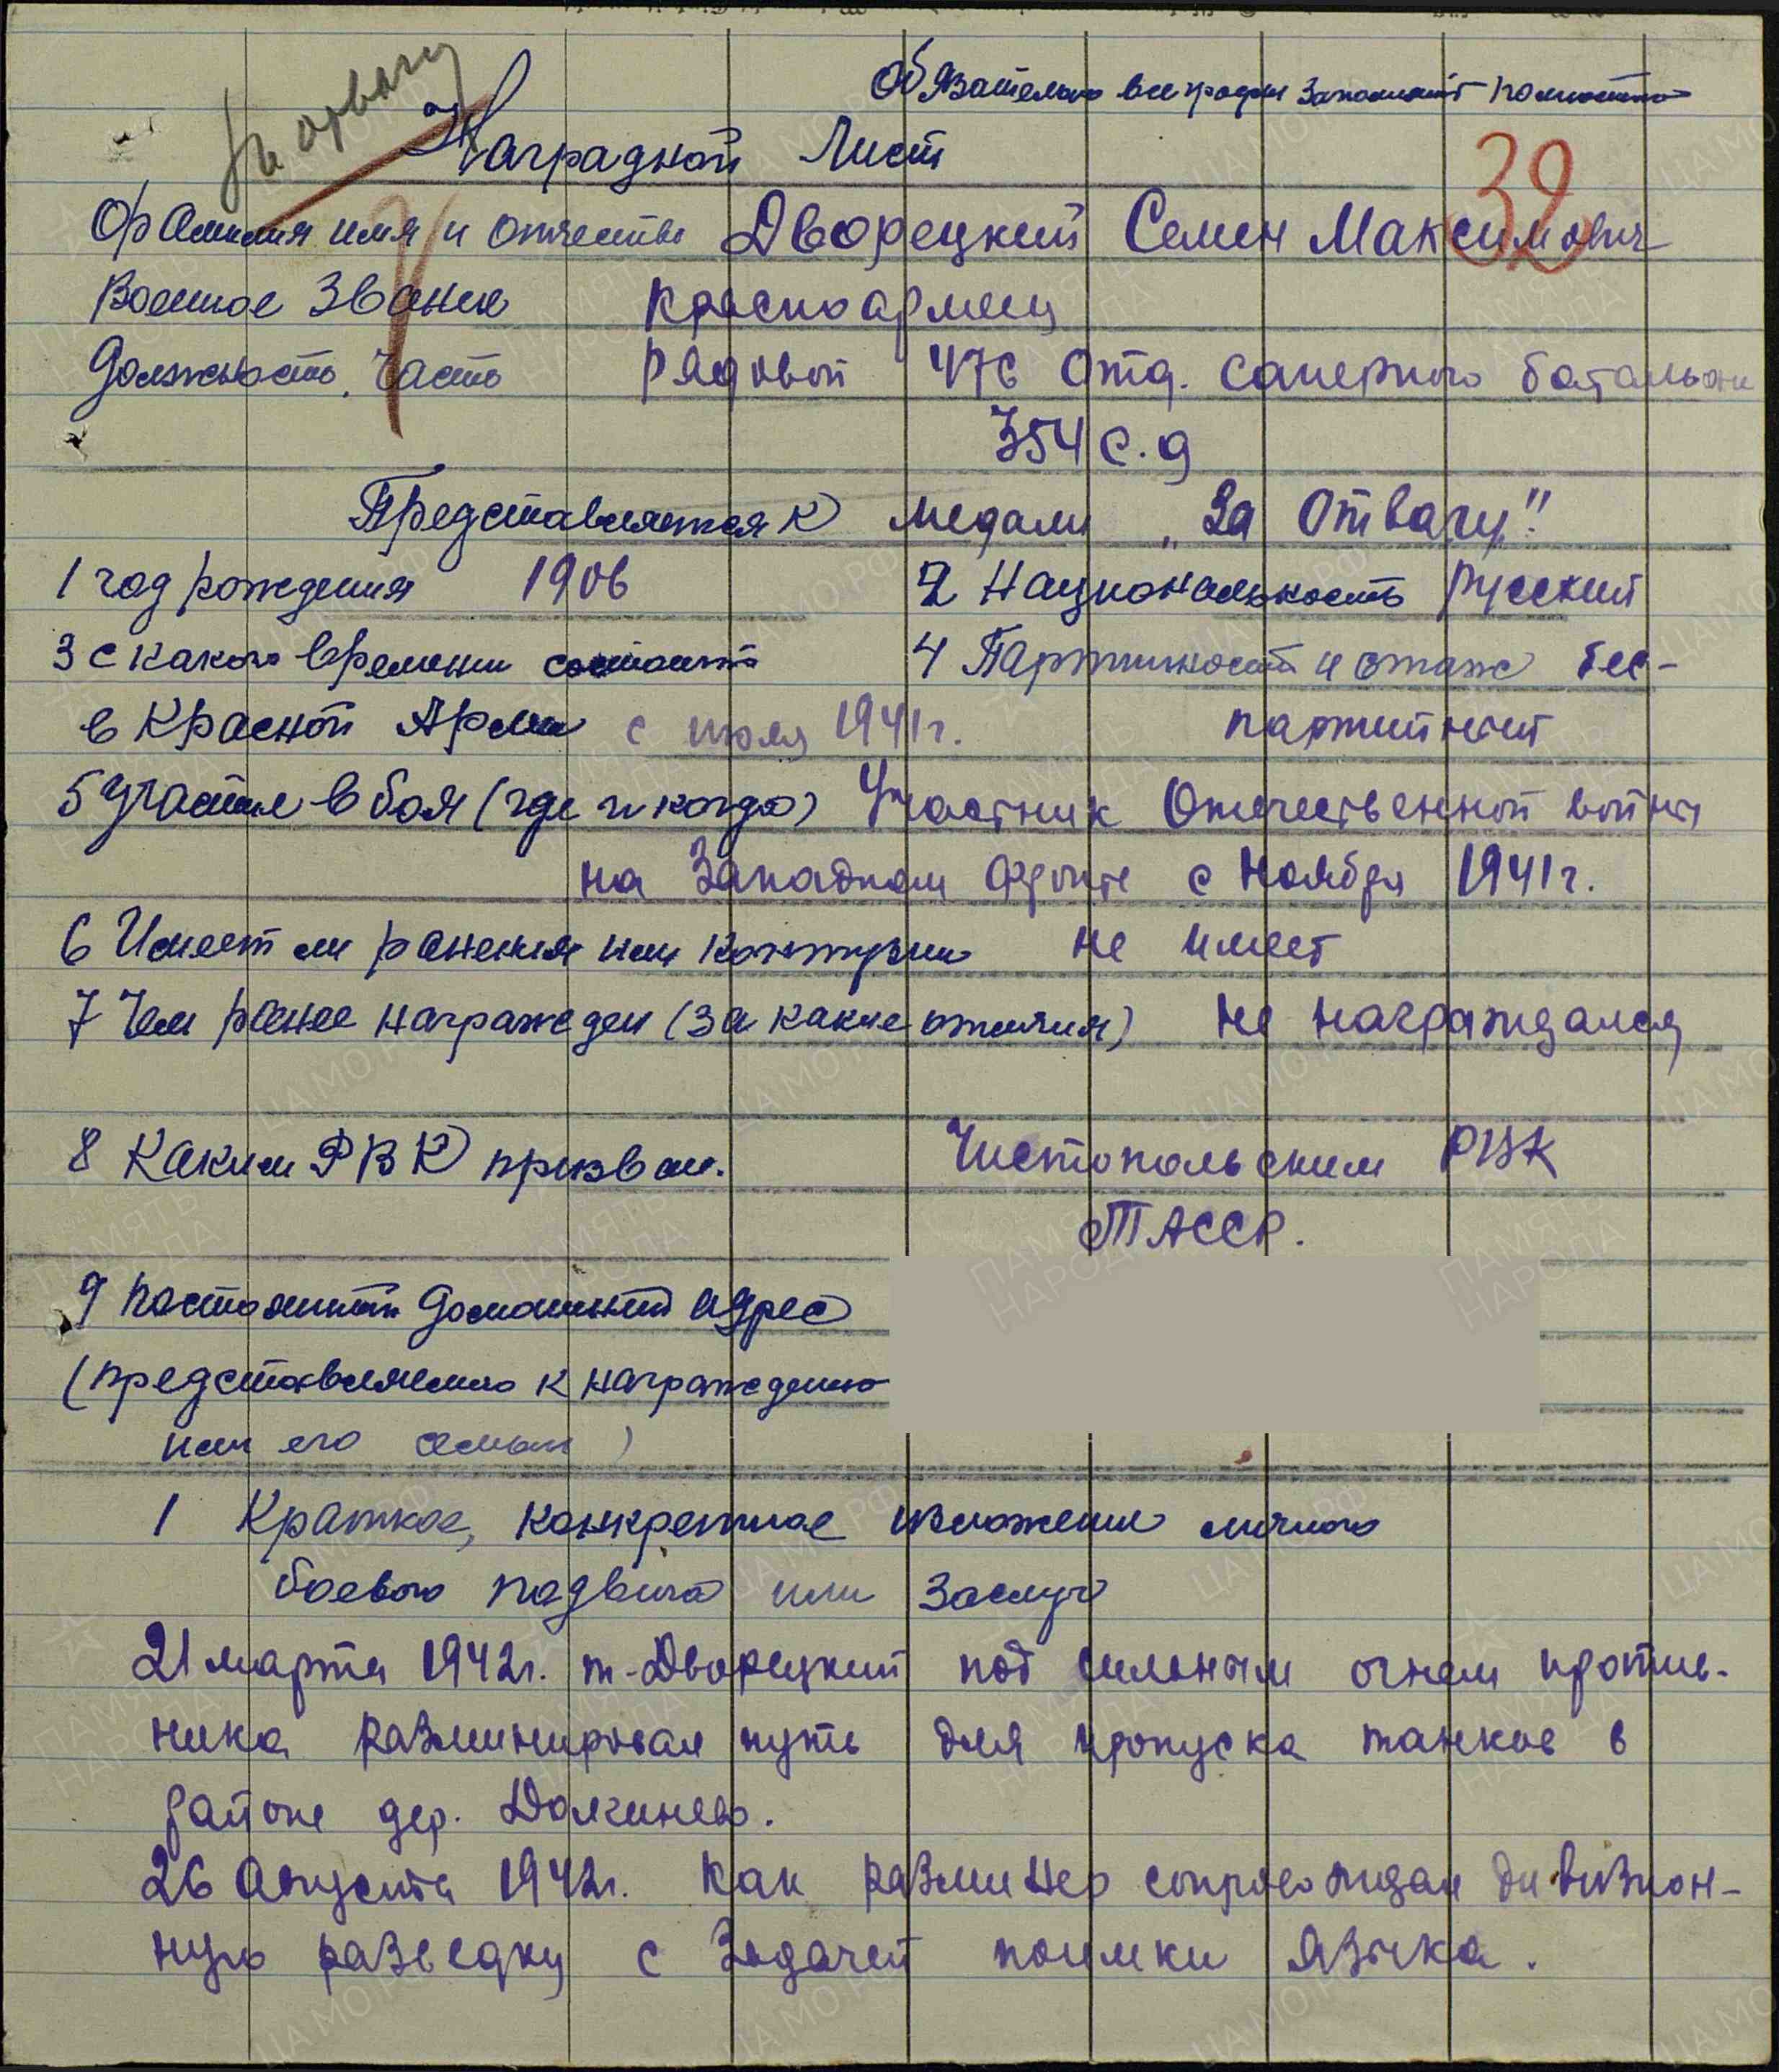 За отвагу
Обязательно все графы заполнять полностью
Наградной Лист
32
Фамилия имя и отчество Дворецкий Семен Максимович
Военное звание красноармеец
Должность, часть рядовой 476 отд. саперного батальона
354 с.д
Представляется к медали „За Отвагу"
1 год рождения 1906 2 Национальность русский
3 с какого времени состоит 4 Партийность и стаж бес-
в Красной Армии с июля 1941г. партийный
5 Участие в боях (где и когда) Участник Отечественной войны
на Западном фронте с Ноября 1941г.
6 Имеет ли ранения или контузии не имеет
7 Чем ранее награжден (за какие отличия) не награждался
8 Каким РВК призван. Чистопольским РВК
ТАССР.
9 Постоянный домашний адрес
(представляемого к награждению
или его семьи)
1 Краткое, конкретное изложение личного
боевого подвига или заслуг
21 марта 1942г. т-Дворецкий под сильным огнем против-
ника разминировал путь для пропуска танков в
районе дер. Долгинево.
26 Августа 1942г. как разминер сопровождал дивизион-
ную разведку с задачей поимки языка.